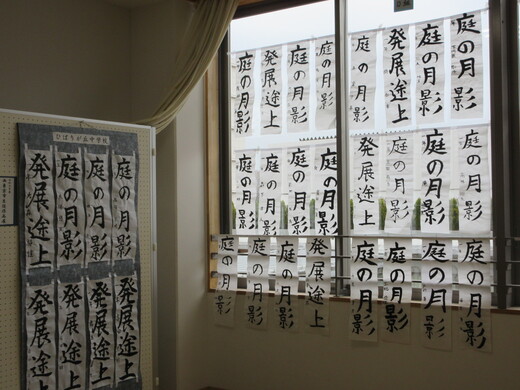 ひばりが丘中学校
庭の月影
庭の月影
庭の月影
発展途上
発展途上
発展途上
発展途上
発展途上
庭の月影
庭の月影
発展途上
庭の月影
庭の月影
庭の月影
発展途上
庭の月影
庭の月影
庭の月影
庭の月影
発展途上
庭の月影
庭の月影
庭の月影
庭の月影
庭の月影
庭の月影
庭の月影
庭の月影
発展途上
庭の月影
庭の月影
庭の月影